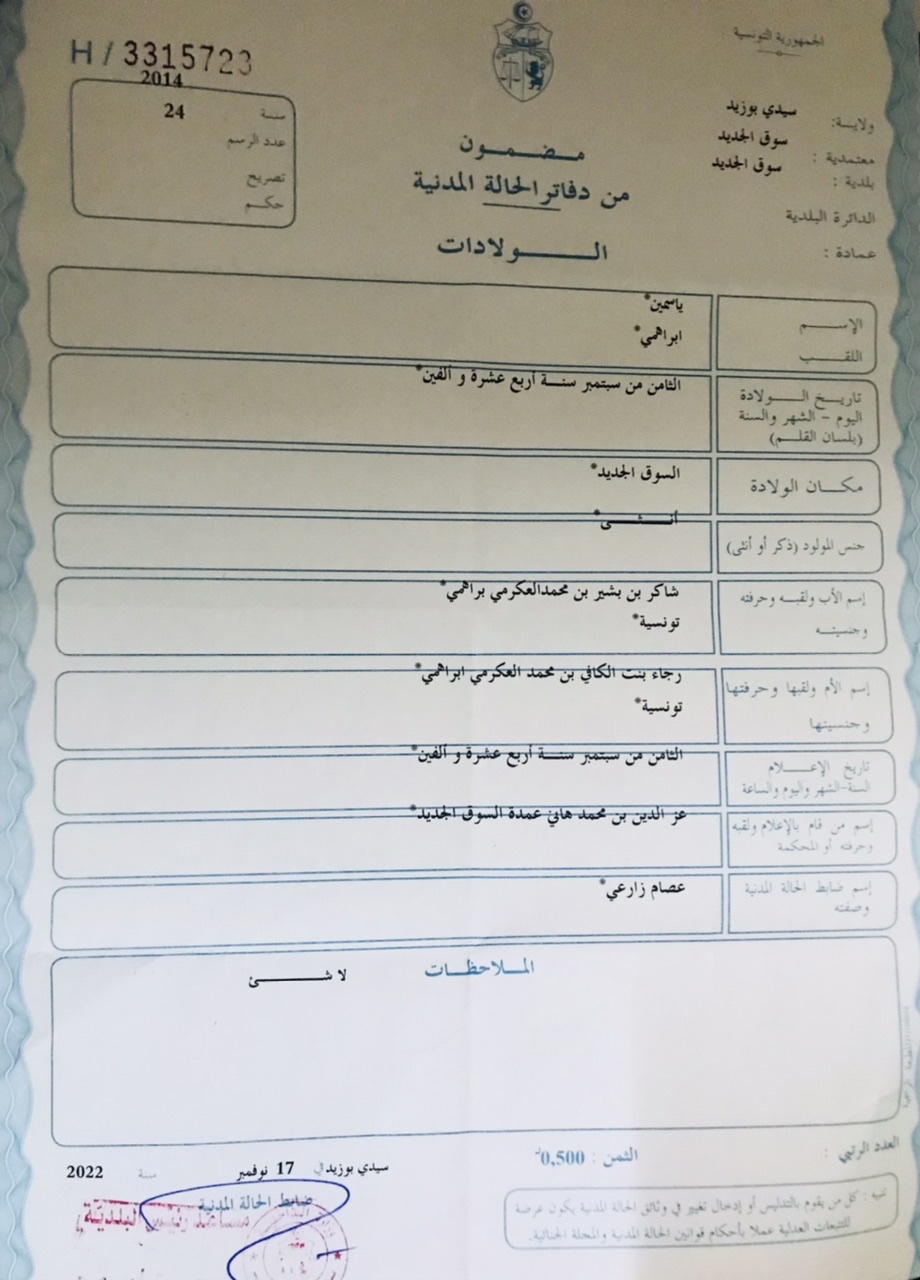 الجمهورية التونسية
H / 3315723
2014
سنة
24
عدد الرسم
تصريح
حكم
ولاية: سيدي بوزيد
معتمدية : سوق الجديد
بلدية : سوق الجديد
الدائرة البلدية
عمادة :
مضمون
من دفاتر الحالة المدنية
الولادات
الإسم ياسمين*
اللقب ابراهمي*
تاريخ الولادة الثامن من سبتمبر سنة أربع عشرة و ألفين*
اليوم - الشهر والسنة
(بلسان القلم)
مكان الولادة السوق الجديد*
جنس المولود (ذكر أو أنثى) أنثى*
إسم الأب ولقبه وحرفته شاكر بن بشير بن محمدالعكرمي براهمي*
وجنسيته تونسية*
إسم الأم ولقبها وحرفتها رجاء بنت الكافي بن محمد العكرمي ابراهمي*
وجنسيتها تونسية*
تاريخ الإعلام الثامن من سبتمبر سنة أربع عشرة و ألفين*
السنة-الشهر واليوم والساعة
إسم من قام بالإعلام ولقبه عز الدين بن محمد هاني عمدة السوق الجديد*
وحرفته أو المحكمة
إسم ضابط الحالة المدنية عصام زارعي*
وصفته
الملاحظات لا شئ
العدد الرتبي :
الثمن : 0,500د
سيدي بوزيد في 17 نوفمبر سنة 2022
ضابط الحالة المدنية
مساعد رئيس البلدية
تنبيه : كل من يقوم بالتدليس أو إدخال تغيير في وثائق الحالة المدنية يكون عرضة
للتتبعات العدلية عملا بأحكام قوانين الحالة المدنية والمجلة الجنائية.